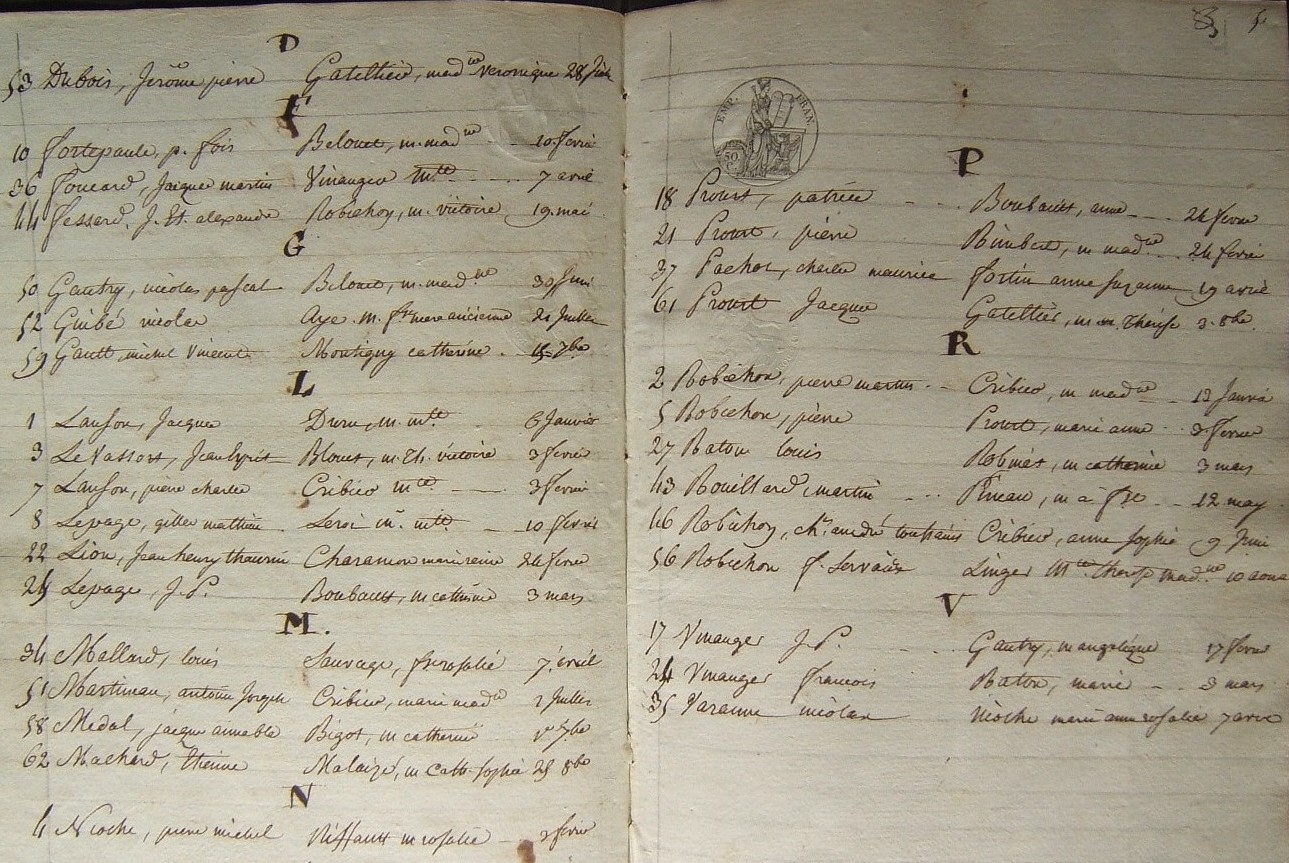 D
53 Dubois, Jerôme pierre Gatellier, mad.ne Veronique 28
F
10 Fortepaule, p. fois Belouet, m. mad.ne 10 fevrie
36 Foucard, Jacque martin Vinauger m.te 7 avril
44 Fessard, J. Bt. alexandre Robichon, m. victoire 19 mai
G
50 Gautry, nicolas pascal Belouet, m. mad.ne 30 Juin
52 Guibé nicolas Aye. m. 21 Juillet
59 Gault michel Vincent Montigny catherine 15 7bre
L
1 Lanson, Jacque Duru, m. m.te 6 Janvier
3 Le Vassort, Jean Blouet, m. Th. victoire 3 fevrier
7 Lanson, pierre charles Cribier m.te 3 fevrier
8 Lepage, gilles mathieu Leroi m. m.te 10 fevrie
22 Lion, Jean henry thaurin Charamon marie reine 24 fevrie
25 Lepage, J. P. Boubault, m catherine 3 mars
M.
34 Mallard, louis Sauvage, fse rosalie 7 avril
51 Martineau, antoine Joseph Cribier, marie mad.ne 2 Juillet
58 Medal, jacque aimable Bigot, m catherine 1er 7bre
62 Machard, Etienne Malaizé, m Cath. Sophie 25 8bre
N
4 Nioche, pierre michel Riffault m rosalie 3 fevrie
5
EMP. FRAN.
50 C.
P
18 Proust, patrice Boubault, anne 24 fevrie
21 Proust, pierre Rimbert, m mad.ne 24 fevrie
37 Pachot, charles maurice Fortin anne suzanne 19 avril
61 Proust Jacque Gatellier, m m. thérese 3. 8bre
R
2 Robichon, pierre martin Cribier, m mad.ne 13 Janvier
5 Robichon, pierre Proust, marie anne 3 fevrier
27 Baton louis Robinet, m catherine 3 mars
43 Rouillard, martin Pineau, m a fse 12 may
46 Robichon, ch. andré toussaint Cribier, anne sophie 9 Juin
56 Robichon f. Servais Linger m.te therese mad.ne 10 aout
V
17 Vinauger J. P. Gautry, m angelique 17 fevrier
24 Vinauger francois Baton, marie 3 mars
35 Varanne nicolas Nioche marie anne rosalie 7 avril